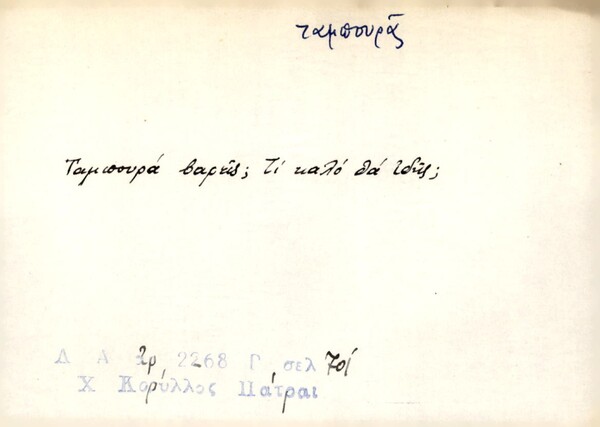 ταμπουρᾶ
Ταμπουρά βαρεῖς; Τί καλό θά ἰδῆς;
Δ Α ἀρ 2268 Γ σελ 701
Χ Κορύλλος Πάτραι